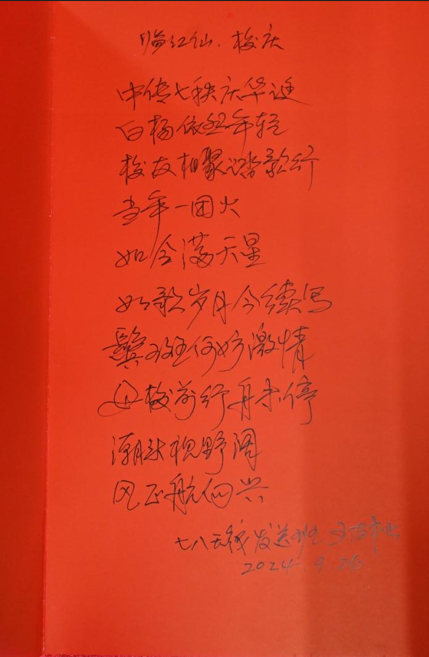 临江仙·校庆
中传七秩庆华诞
白杨依然年轻
校友相聚踏歌行
当年一团火
如今满天星
如歌岁月今续写
鬓斑何妨激情
母校前行再未停
潮跃视野阔
风正航向兴
七八无线发送班
2024.9.26